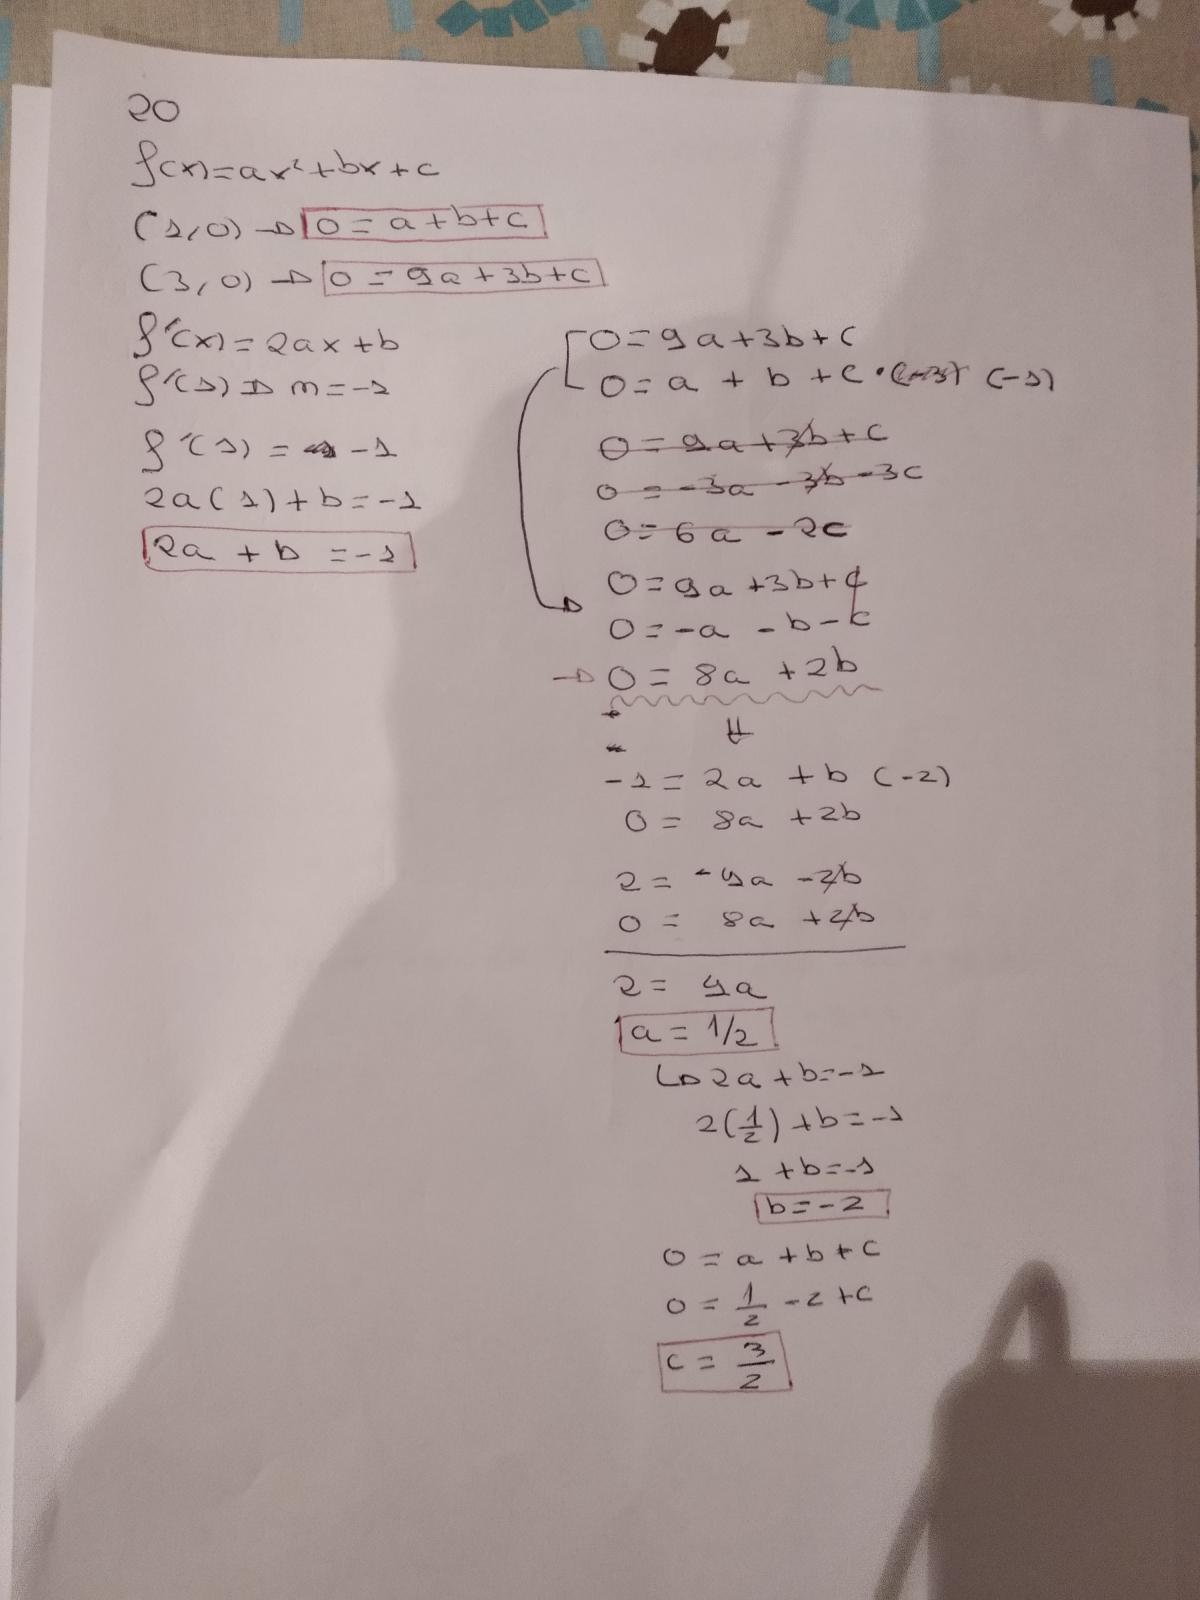 20
f(x)=ax²+bx+c
(1,0) → 0 = a+b+c
(3,0) → 0 = 9a+3b+c
f'(x)=2ax+b
f'(1) → m=-1
f'(1) = -1
2a(1)+b=-1
2a + b =-1
0=9a+3b+c
0=a + b +c · (-3) (-1)
0=9a+3b+c
0=-3a-3b-3c
0=6a-2c
0=9a+3b+c
0=-a -b-c
→ 0= 8a +2b
⇓
-1=2a +b (-2)
0= 8a +2b
2= -4a -2b
0= 8a +2b
2= 4a
a=1/2
↳ 2a+b=-1
2(1/2)+b=-1
1 +b=-1
b=-2
0=a+b+c
0=1/2 -2+c
c= 3/2